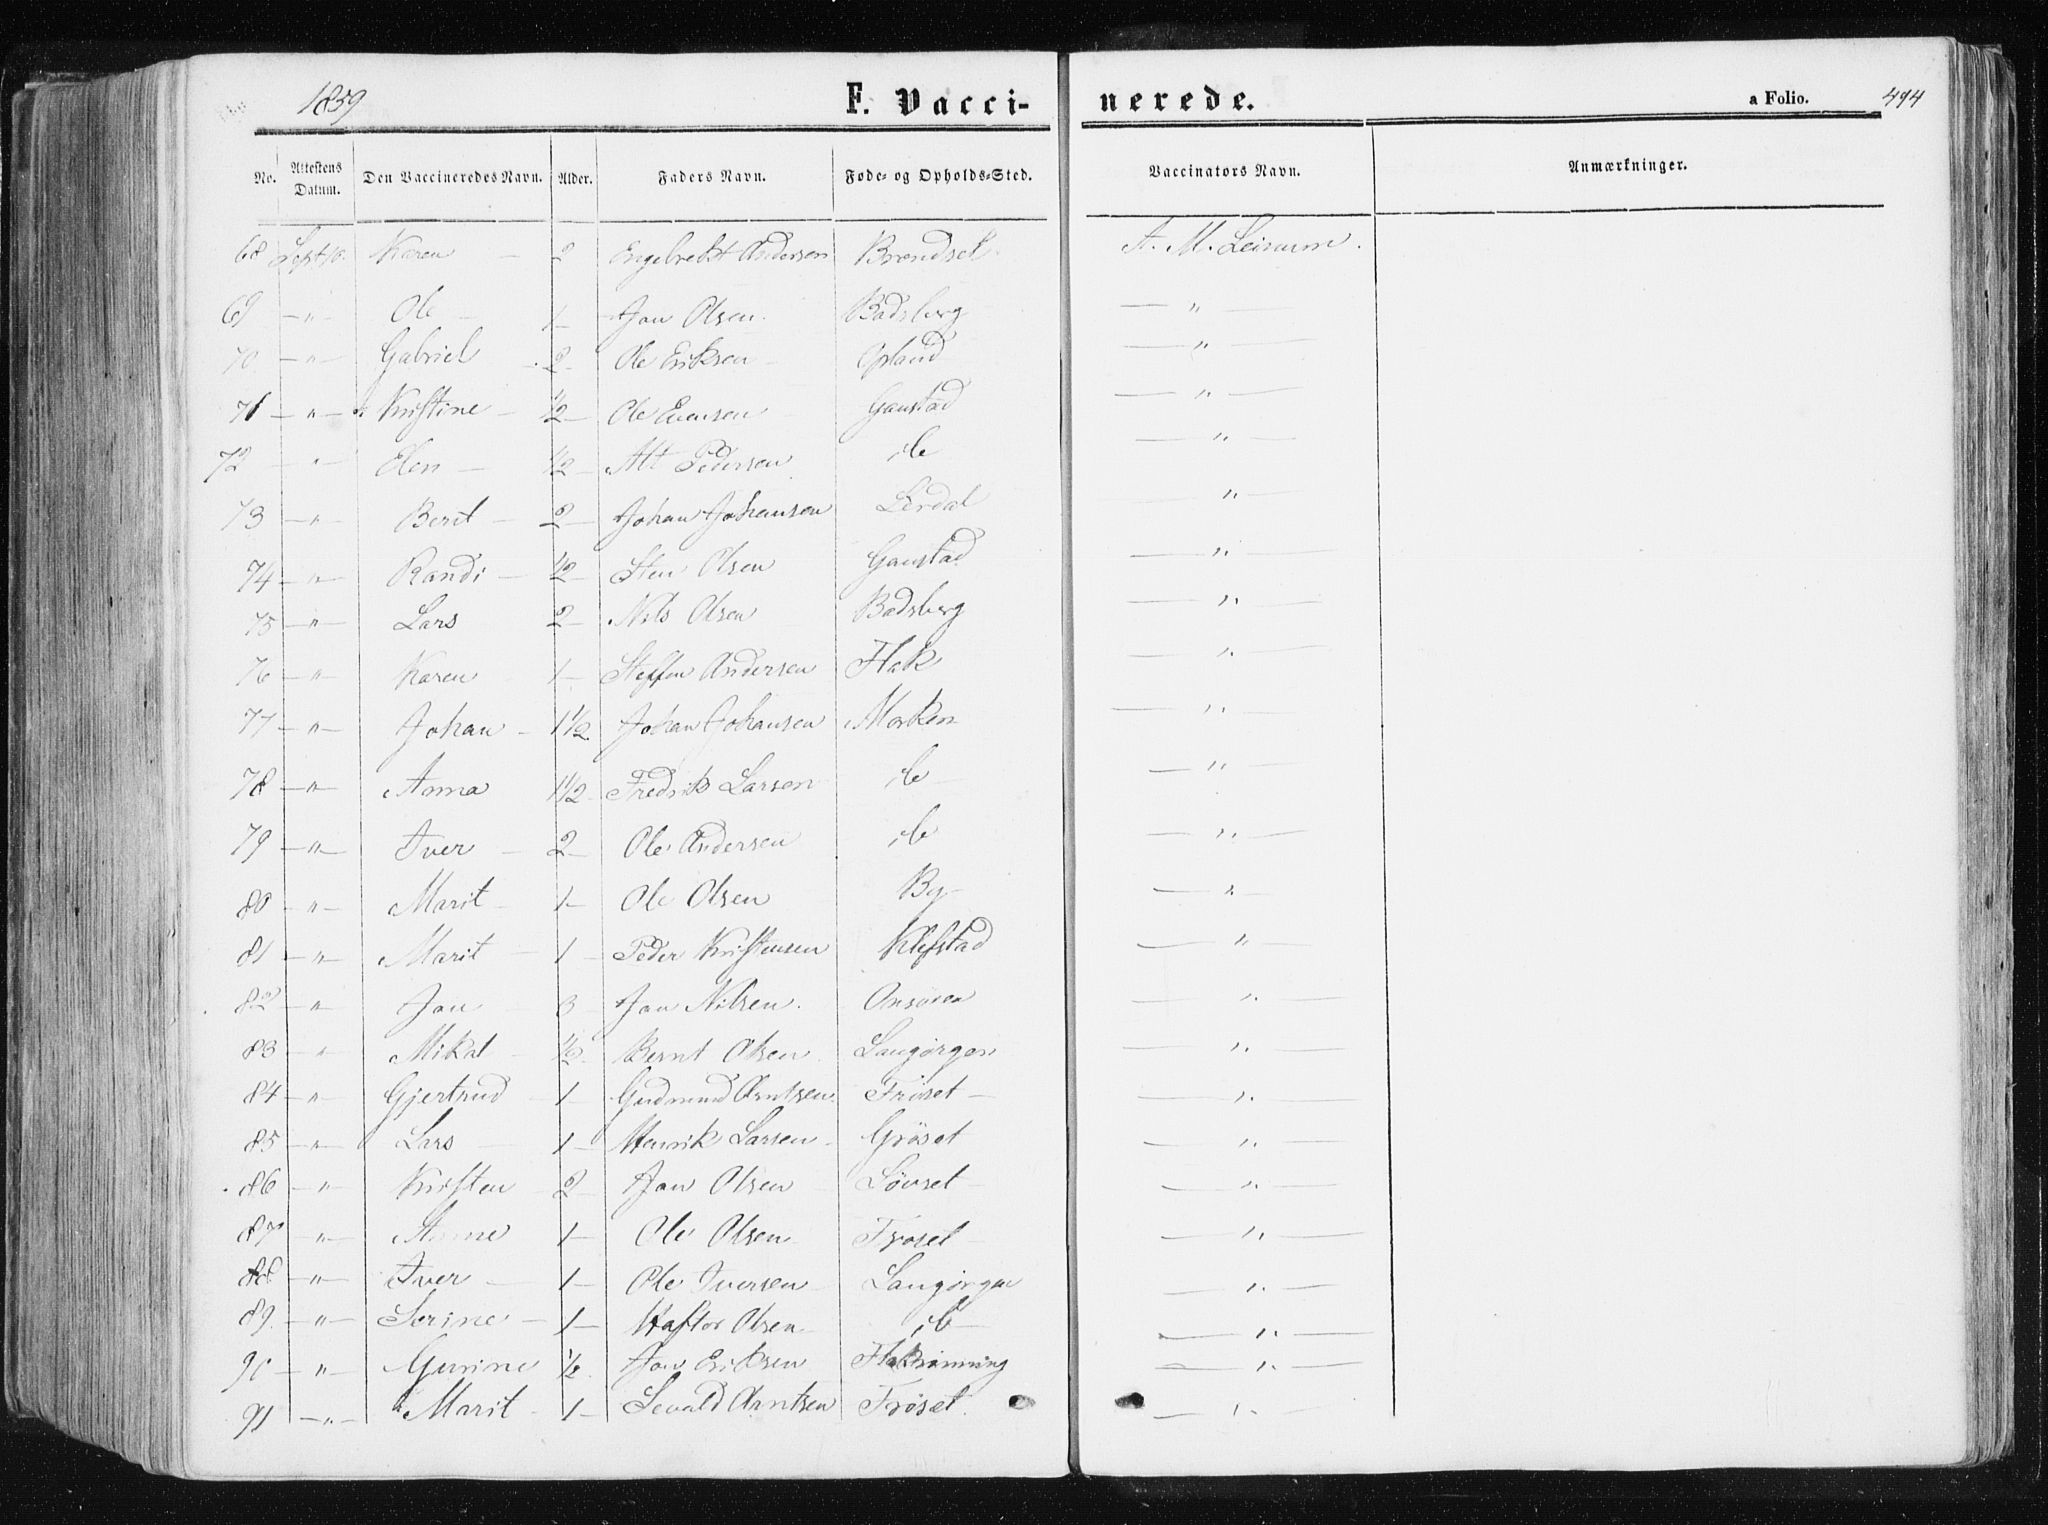 1859 F. Vacci- nerede. a Folio. 494
No. Attestens Datum. Den Vaccineredes Navn. Alder. Faders Navn. Føde- og Opholds-Sted. Vaccinators Navn. Anmærkninger.
68 Sept 10. Karen — 2 Engelrekt Andersen Brændset. A. M. Leirum.
69 — " — Ole — 1 — Jon Olsen. Badsberg — " —
70 — " — Gabriel 2 — Ole Eriksen — Opland — " —
71 — " — Kristine — 1/2 — Ole Evensen Ganstad — " —
72 — " — Elen — 1/2 — Alt Pedersen ib — " —
73 — " — Berit — 2 — Johan Johansen Lerdal — " —
74 — " — Randi — 1/2 — Sten Olsen Ganstad — " —
75 — " — Lars 2 — Nils Olsen Badsberg — " —
76 — " — Karen 1 — Steffen Andersen Flak — " —
77 — " — Johan — 1 1/2 Johan Johansen Morken — " —
78 — " — Anna 1 1/2 — Fredrik Larsen ib — " —
79 — " — Iver — 2 — Ole Andersen ib — " —
80 — " — Marit — 1 — Ole Olsen By — — " —
81 — " — Marit — 1 — Peder Kristensen Klefstad — " —
82 — " — Jon — 3 — Jon Nilsen. Onsøien — " —
83 — " Mikal — 1/2 — Bernt Olsen. Langørgen — " —
84 — " — Gjertrud — 1 — Gudmund Arntsen. Frøset — — " —
85 — " — Lars — 1 — Henrik Larsen — Grøset — " —
86 — " — Kirsten — 2 — Jon Olsen — Løvset — — " —
87 — " — Anne 1 — Ole Olsen — Frøset — — " —
88 — " — Iver — 1 — Ole Iversen — Langørgen — " —
89 — " — Serine — 1 — Haftor Olsen — ib — — " —
90 — " — Gurine 1/2. Jon Eriksen Flakrønning — " —
91 — " — Marit — 1 — Sevald Arntsen Frøset. — " —